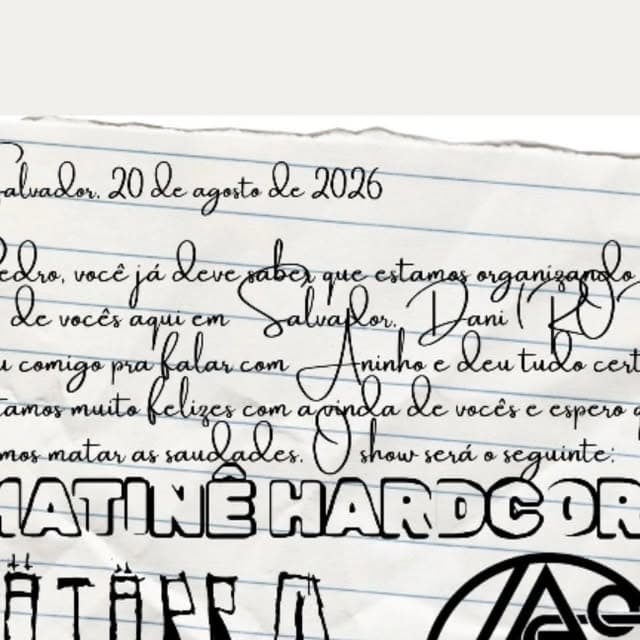 Salvador, 20 de agosto de 2026
Pedro, você já deve saber que estamos organizando
de vocês aqui em Salvador. Dani (RO
u comigo pra falar com Aninho e deu tudo cert
tamos muito felizes com a vinda de vocês e espero q
mos matar as saudades. O show será o seguinte:
MATINÊ HARDCOR